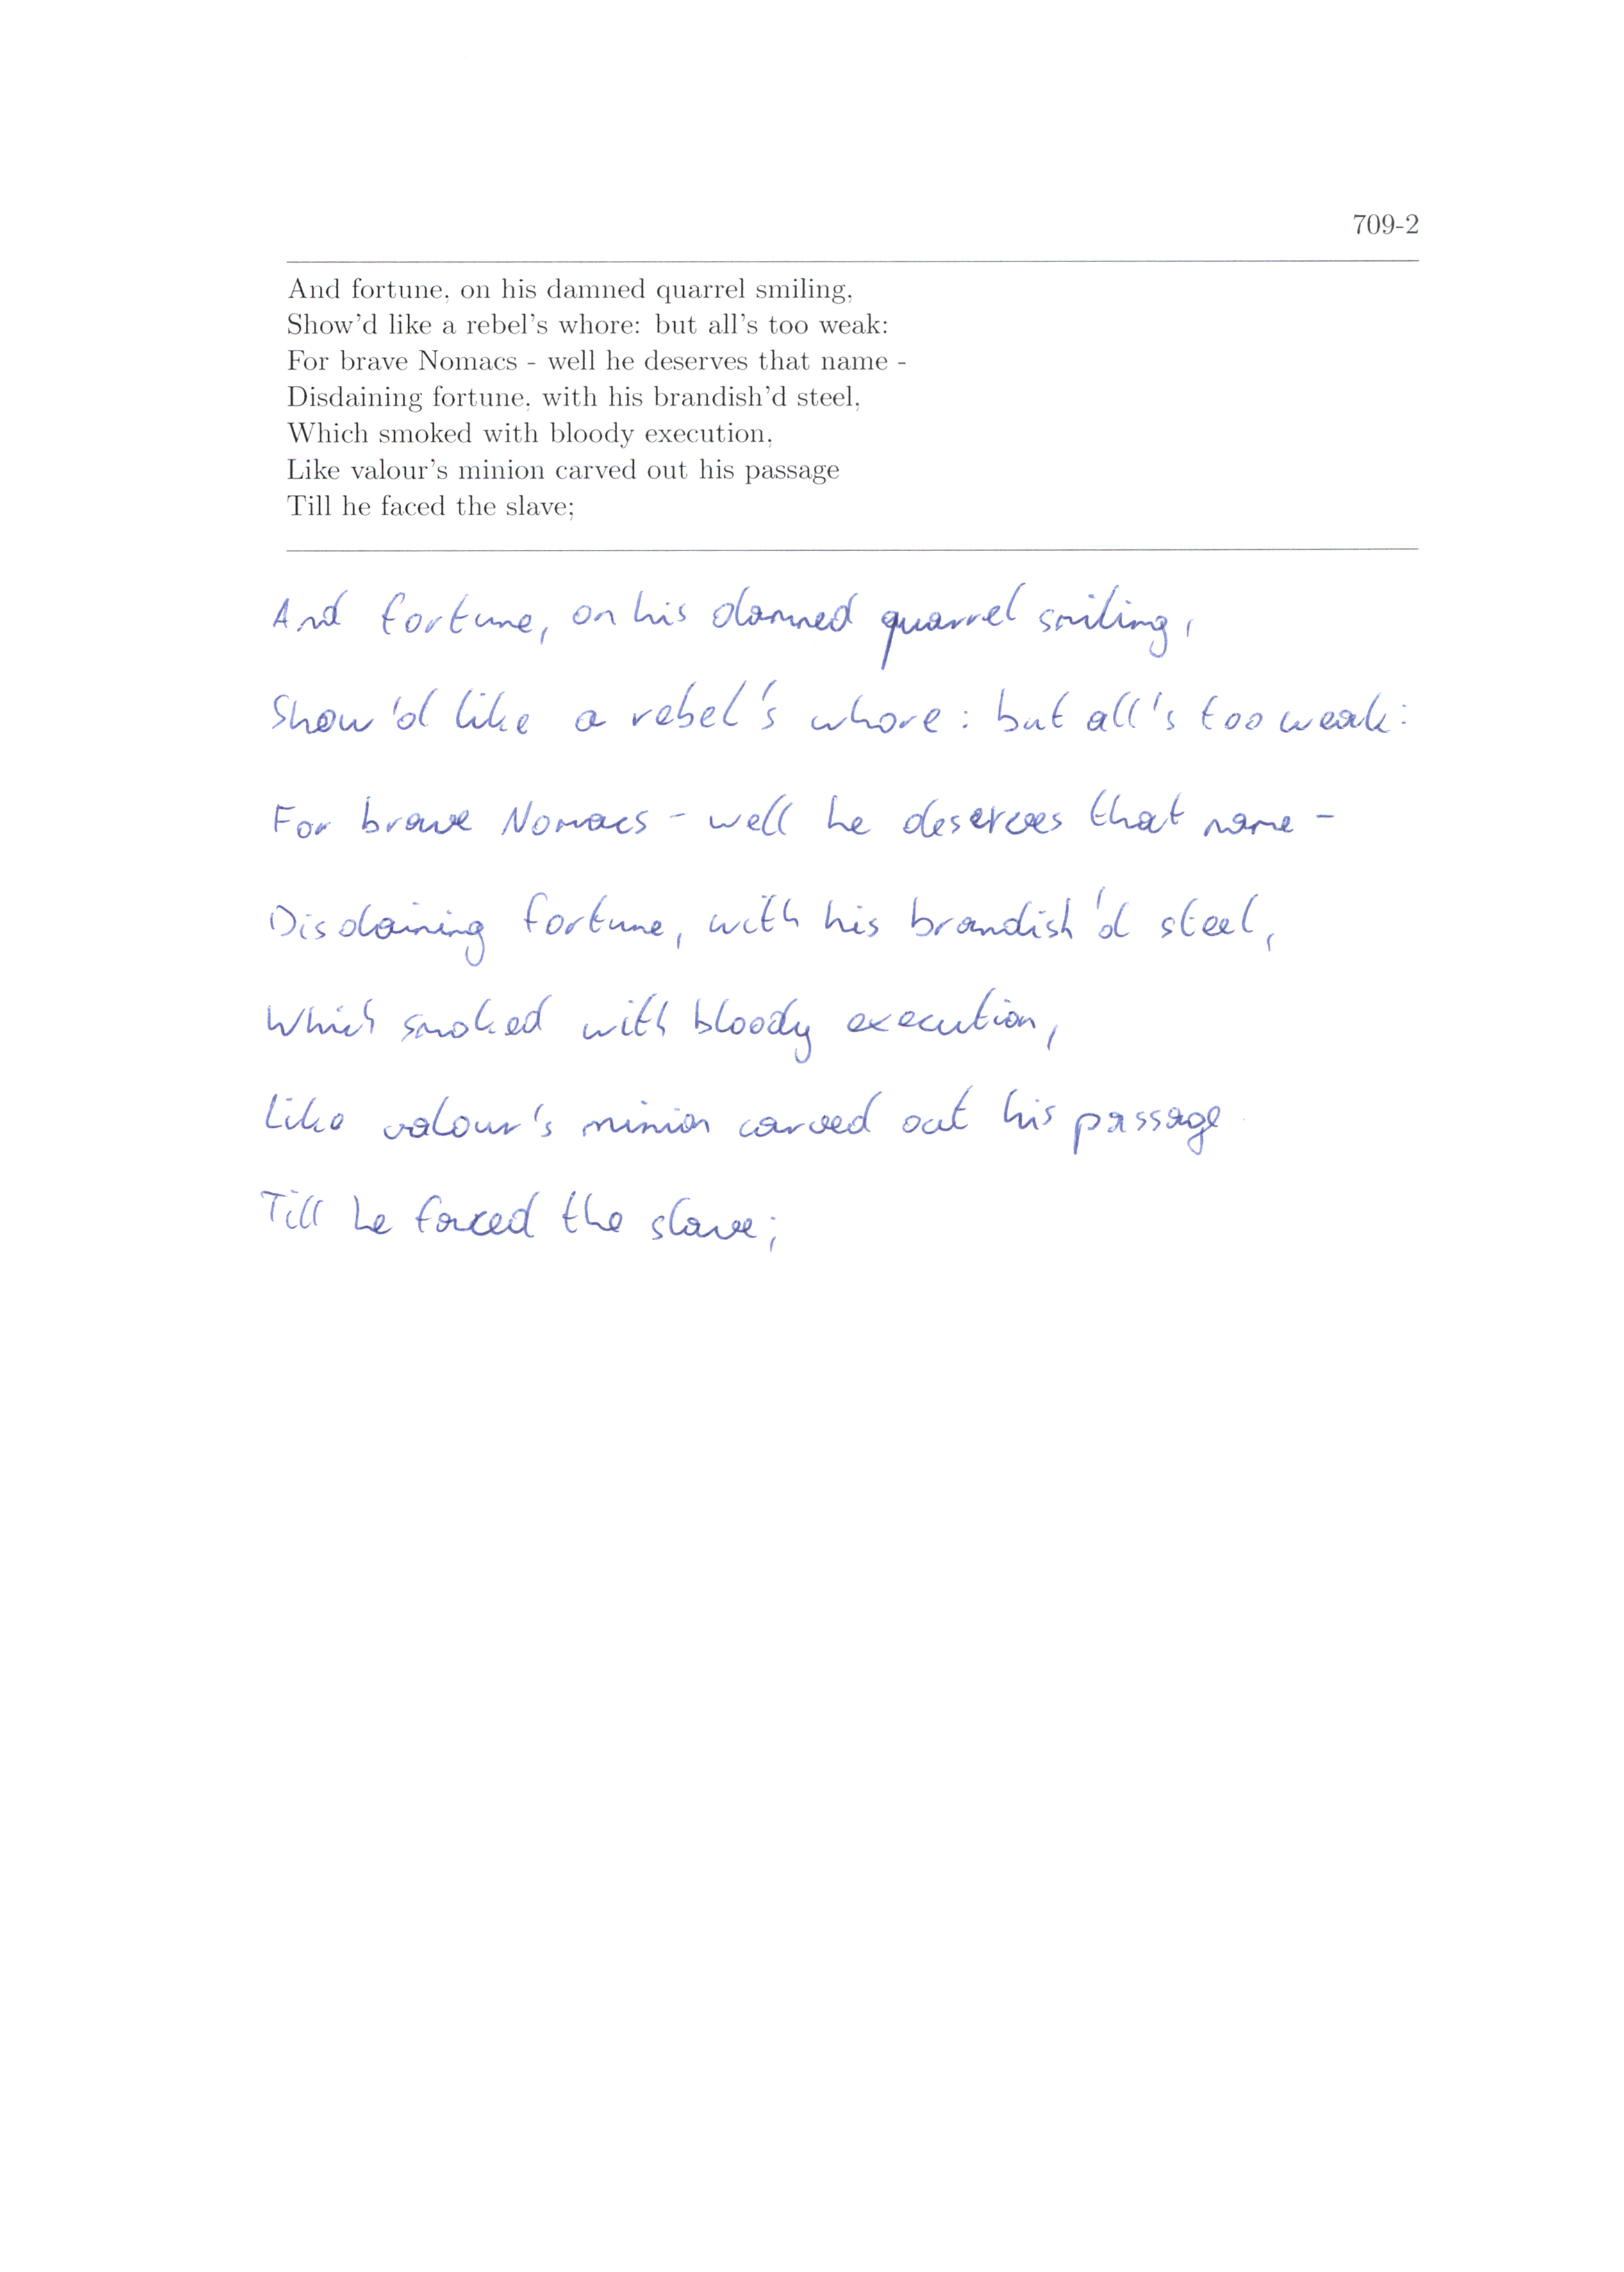 709-2
And fortune, on his damned quarrel smiling,
Show'd like a rebel's whore: but all's too weak:
For brave Nomacs - well he deserves that name -
Disdaining fortune, with his brandish'd steel,
Which smoked with bloody execution,
Like valour's minion carved out his passage
Till he faced the slave;
And fortune, on his damned quarrel smiling,
Show'd like a rebel's whore: but all's too weak:
For brave Nomacs - well he deserves that name -
Disdaining fortune, with his brandish'd steel,
Which smoked with bloody execution,
Like valour's minion carved out his passage
Till he faced the slave;